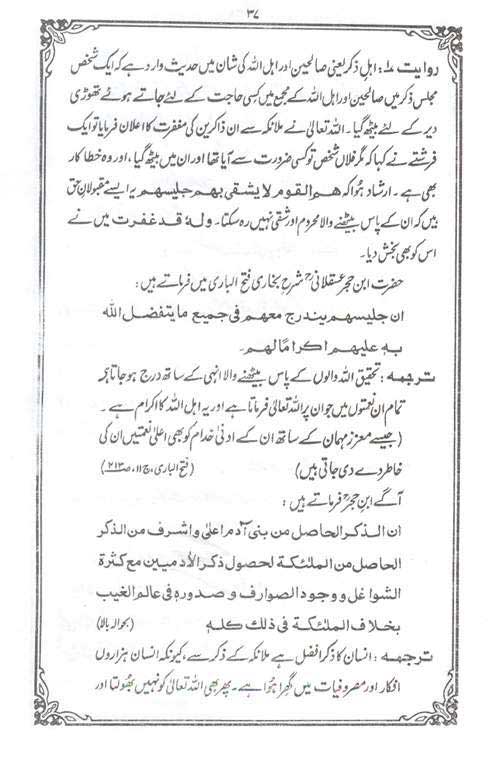 ۳۷
روایت ۱۰: اہلِ ذکر یعنی صالحین اور اہل اللہ کی شان میں حدیث وارد ہے کہ ایک شخص
مجلس ذکر میں صالحین اور اہل اللہ کے مجمع میں کسی حاجت کے لئے جاتے ہوئے تھوڑی
دیر کے لئے بیٹھ گیا۔ اللہ تعالیٰ نے ملائکہ سے ان ذاکرین کی مغفرت کا اعلان فرمایا تو ایک
فرشتے نے کہا کہ مگر فلاں شخص تو کسی ضرورت سے آیا تھا اور ان میں بیٹھ گیا، اور وہ خطا کار
بھی ہے۔ ارشاد ہُوا کہ هم القوم لا یشقی بهم جلیسهم یہ ایسے مقبولانِ حق
ہیں کہ ان کے پاس بیٹھنے والا محروم اور شقی نہیں رہ سکتا۔ وله قد غفرت میں نے
اس کو بھی بخش دیا۔
حضرت ابن حجر عسقلانیؒ شرح بخاری فتح الباری میں فرماتے ہیں:
ان جلیسهم یندرج معهم فی جمیع ما یتفضل الله
به علیهم اکرامًا لهم۔
ترجمہ: تحقیق اللہ والوں کے پاس بیٹھنے والا انہی کے ساتھ درج ہو جاتا ہے
تمام ان نعمتوں میں جو ان پر اللہ تعالیٰ فرماتا ہے اور یہ اہل اللہ کا اکرام ہے۔
(جیسے معزز مہمان کے ساتھ ان کے ادنیٰ خدام کو بھی اعلیٰ نعمتیں ان کی
خاطر دے دی جاتی ہیں) (فتح الباری، ج ۱۱، ص ۲۱۳)
آگے ابن حجرؒ فرماتے ہیں:
ان الذکر الحاصل من بنی آدم اعلیٰ واشرف من الذکر
الحاصل من الملئکة لحصول ذکر الآدمیین مع کثرة
الشواغل و وجود الصوارف و صدوره فی عالم الغیب
بخلاف الملئکة فی ذلک کله (بحوالہ بالا)
ترجمہ: انسان کا ذکر افضل ہے ملائکہ کے ذکر سے، کیونکہ انسان ہزاروں
افکار اور مصروفیات میں گھرا ہُوا ہے۔ پھر بھی اللہ تعالیٰ کو نہیں بھُولتا اور